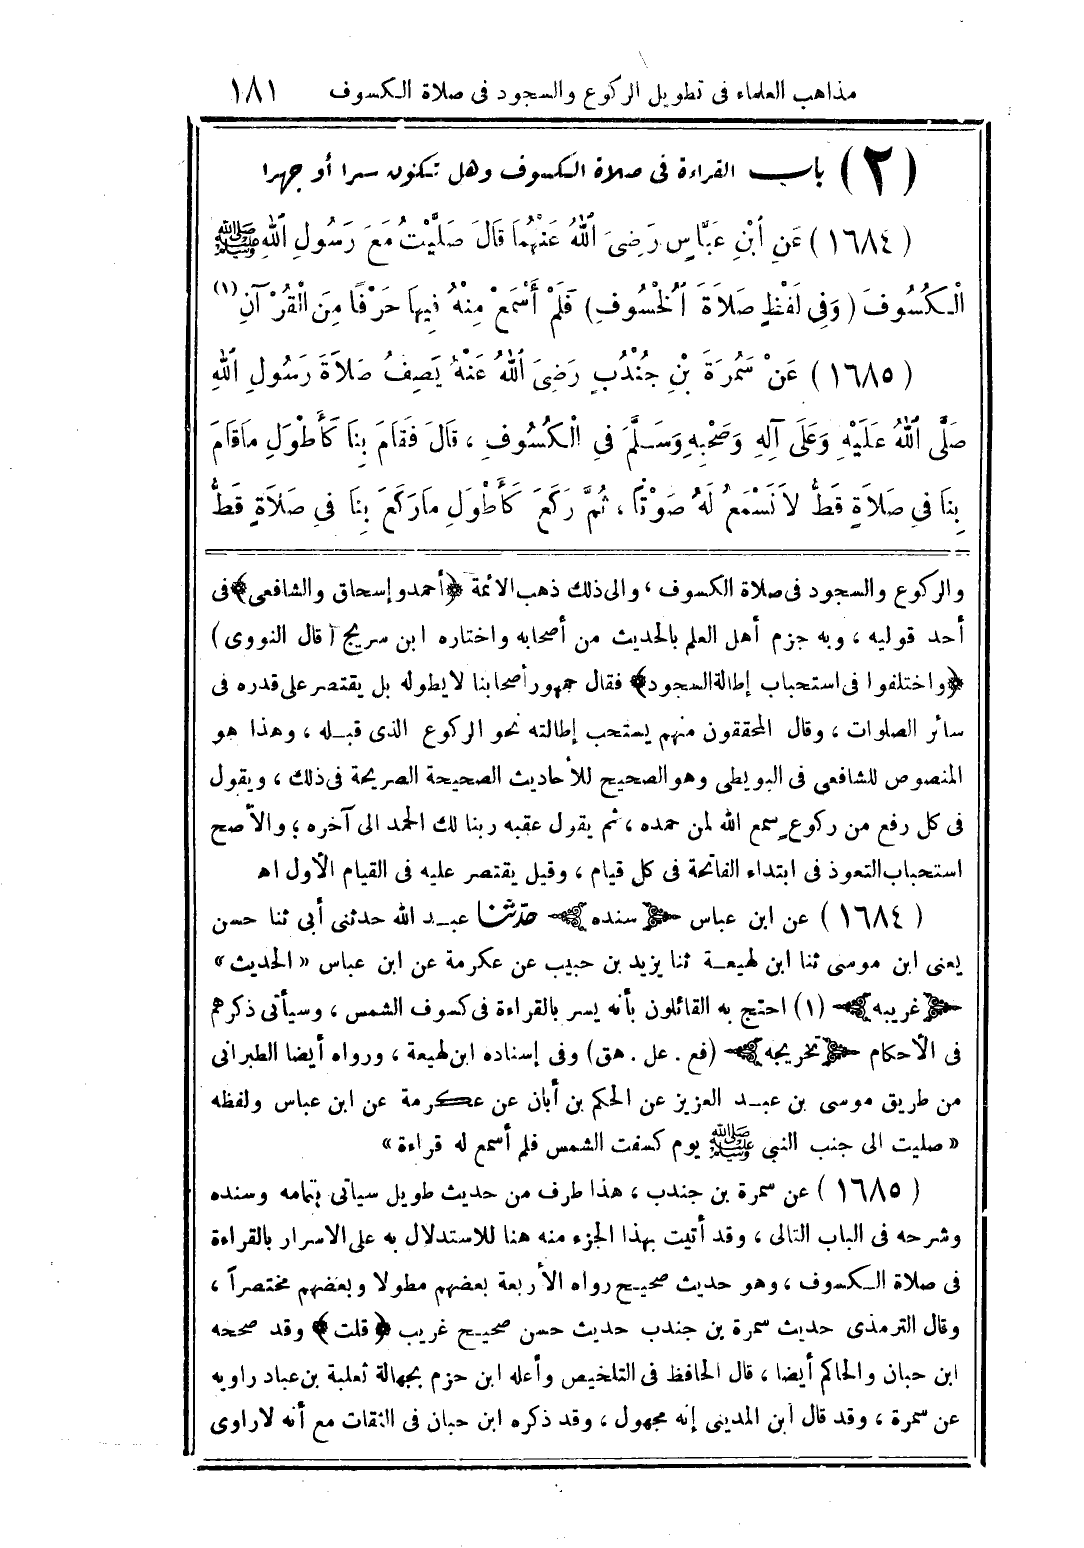 مذاهب العلماء فى تطويل الركوع والسجود فى صلاة الكسوف ١٨١
(٢) باب القراءة فى صلاة الكسوف وهل تكون سرا أو جهرا
(١٦٨٤) عَنِ ابْنِ عَبَّاسٍ رَضِىَ اللهُ عَنْهُمَا قَالَ صَلَّيْتُ مَعَ رَسُولِ اللهِ ﷺ
الْكُسُوفَ (وَفِى لَفْظٍ صَلَاةَ الْخُسُوفِ) فَلَمْ أَسْمَعْ مِنْهُ فِيهَا حَرْفًا مِنَ الْقُرْآنِ (١)
(١٦٨٥) عَنْ سَمُرَةَ بْنِ جُنْدُبٍ رَضِىَ اللهُ عَنْهُ يَصِفُ صَلَاةَ رَسُولِ اللهِ
صَلَّى اللهُ عَلَيْهِ وَعَلَى آلِهِ وَصَحْبِهِ وَسَلَّمَ فِى الْكُسُوفِ ، قَالَ فَقَامَ بِنَا كَأَطْوَلِ مَاقَامَ
بِنَا فِى صَلَاةٍ قَطُّ لَا نَسْمَعُ لَهُ صَوْتًا ، ثُمَّ رَكَعَ كَأَطْوَلِ مَارَكَعَ بِنَا فِى صَلَاةٍ قَطُّ
والركوع والسجود فى صلاة الكسوف ، والى ذلك ذهب الأئمة ﴿أحمد وإسحاق والشافعى﴾ فى
أحد قوليه ، وبه جزم أهل العلم بالحديث من أصحابه واختاره ابن سريج (قال النووى)
﴿واختلفوا فى استحباب إطالة السجود﴾ فقال جمهور أصحابنا لايطوله بل يقتصر على قدره فى
سائر الصلوات ، وقال المحققون منهم يستحب إطالته نحو الركوع الذى قبله ، وهذا هو
المنصوص للشافعى فى البويطى وهو الصحيح للأحاديث الصحيحة الصريحة فى ذلك ، ويقول
فى كل رفع من ركوع سمع الله لمن حمده ، ثم يقول عقبه ربنا لك الحمد الى آخره ؛ والأصح
استحباب التعوذ فى ابتداء الفاتحة فى كل قيام ، وقيل يقتصر عليه فى القيام الأول اه
(١٦٨٤) عن ابن عباس ﴿سنده﴾ حدثنا عبد الله حدثنى أبى ثنا حسن
يعنى ابن موسى ثنا ابن لهيعة ثنا يزيد بن حبيب عن عكرمة عن ابن عباس «الحديث»
﴿غريبه﴾ (١) احتج به القائلون بأنه يسر بالقراءة فى كسوف الشمس ، وسيأتى ذكرهم
فى الأحكام ﴿تخريجه﴾ (فع . عل . هق) وفى إسناده ابن لهيعة ، ورواه أيضا الطبرانى
من طريق موسى بن عبد العزيز عن الحكم بن أبان عن عكرمة عن ابن عباس ولفظه
«صليت الى جنب النبي ﷺ يوم كسفت الشمس فلم أسمع له قراءة»
(١٦٨٥) عن سمرة بن جندب ، هذا طرف من حديث طويل سيأتى بتمامه وسنده
وشرحه فى الباب التالى ، وقد أتيت بهذا الجزء منه هنا للاستدلال به على الاسرار بالقراءة
فى صلاة الكسوف ، وهو حديث صحيح رواه الأربعة بعضهم مطولا وبعضهم مختصراً ،
وقال الترمذى حديث سمرة بن جندب حديث حسن صحيح غريب ﴿قلت﴾ وقد صححه
ابن حبان والحاكم أيضا ، قال الحافظ فى التلخيص وأعله ابن حزم بجهالة ثعلبة بن عباد راويه
عن سمرة ، وقد قال ابن المدينى إنه مجهول ، وقد ذكره ابن حبان فى الثقات مع أنه لاراوى